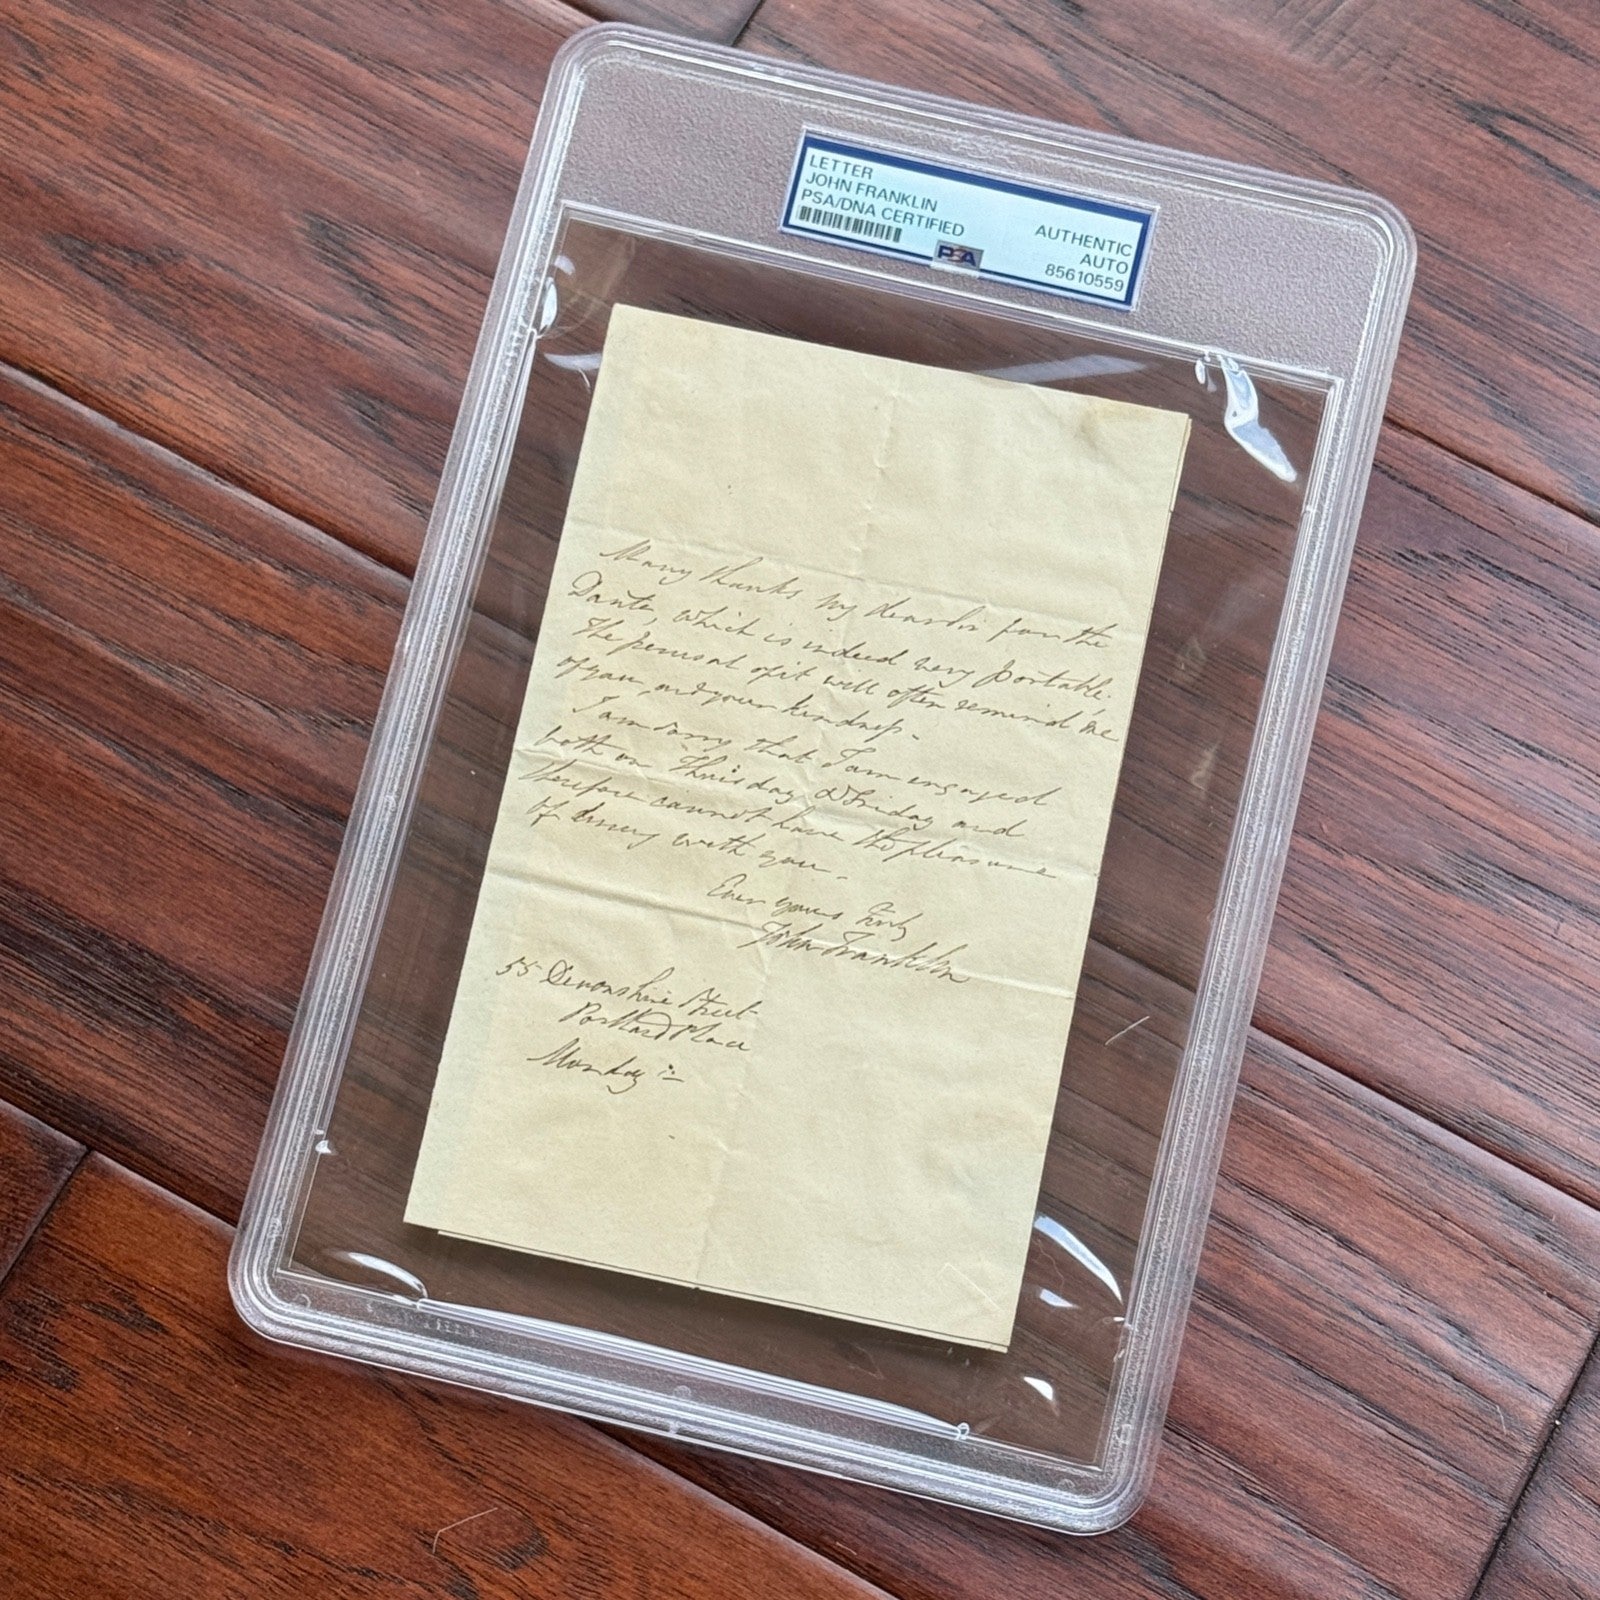 LETTER
JOHN FRANKLIN
PSA/DNA CERTIFIED
AUTHENTIC
AUTO
85610559
PSA
Many thanks my dear Sir for the
Dante, which is indeed very portable.
The perusal of it will often remind me
of you and your kindness.
I am sorry that I am engaged
both on Thursday & Friday and
therefore cannot have the pleasure
of dining with you.
Ever yours truly
John Franklin
55 Devonshire Street
Portland Place
Monday